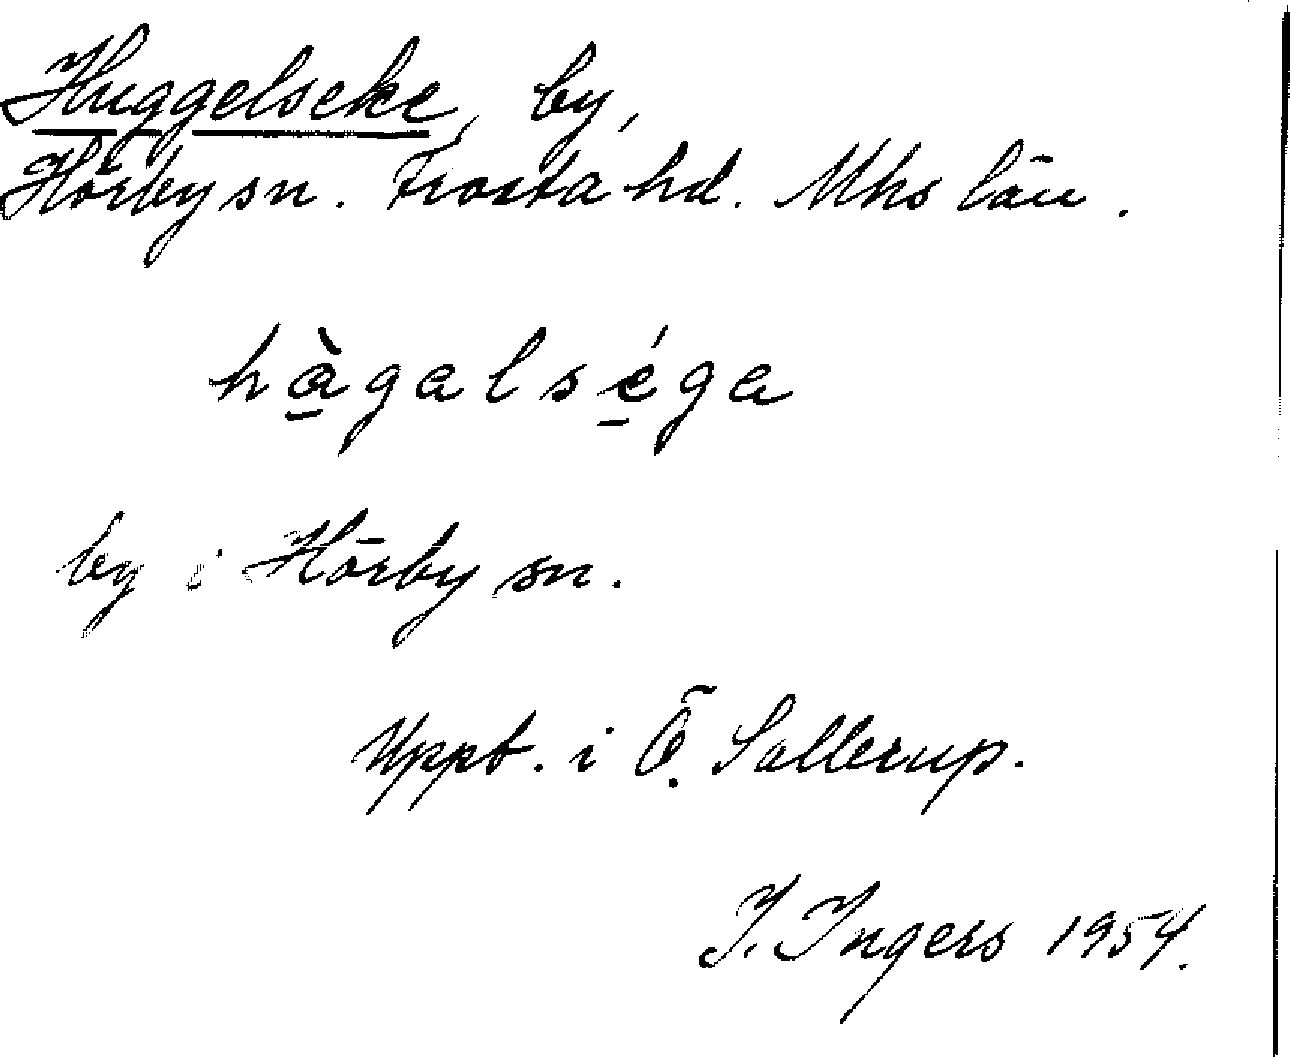 Huggelseke, by,
Hörby sn. Frosta hd. Mhs län.
hàgalséga
by i Hörby sn.
Uppt. i Ö. Sallerup.
I. Ingers 1954.